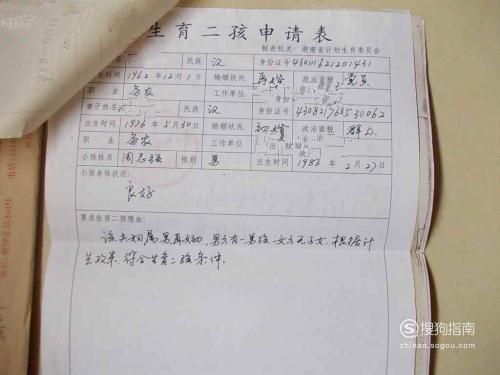 生育二孩申请表
制表机关:湖南省计划生育委员会
民族 汉 身份证号
出生时间 1962年12月1日 婚姻状况 再婚 政治面貌 党员
职业 务农 工作单位
妻子姓名 民族 汉 身份证号
出生时间 1976年5月30日 婚姻状况 初婚 政治面貌 群众
职业 务农 工作单位
小孩姓名 周志强 性别 男 出生时间 1986年2月27日
小孩身体状况:
良好
要求生育二孩理由:
该夫妇属男再女初,男方有一男孩,女方无子女,根据计
生政策,符合生育二孩条件。
搜狗指南
zhinan.sogou.com